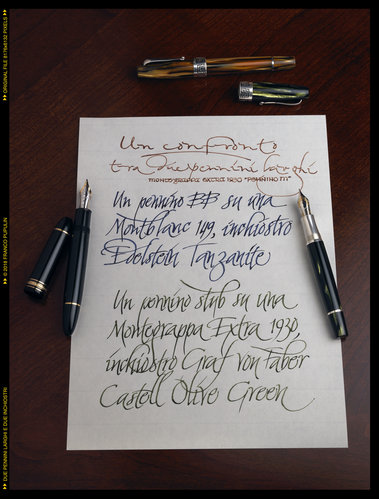 Un confronto
tra due pennini larghi
MONTEGRAPPA EXTRA 1930 "PENNINO M"
Un pennino BB su una
Montblanc 149, inchiostro
Edelstein Tanzanite
Un pennino stub su una
Montegrappa Extra 1930,
inchiostro Graf von Faber
Castell Olive Green
ORIGINAL FILE 6176x8132 PIXELS
© 2018 FRANCO PUPULIN
DUE PENNINI LARGHI E DUE INCHIOSTRI